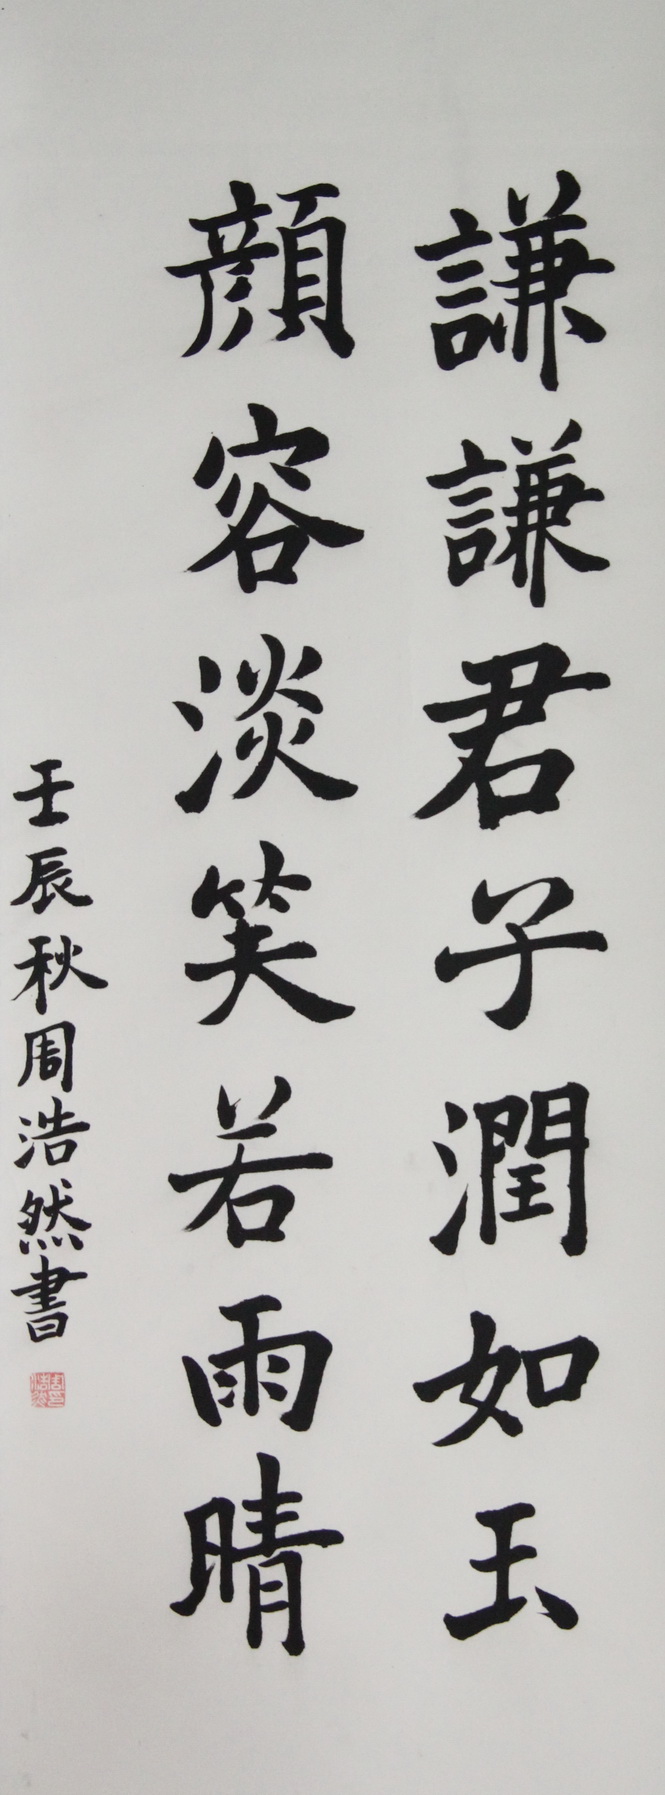 謙謙君子潤如玉
顔容淡笑若雨晴
壬辰秋周浩然書